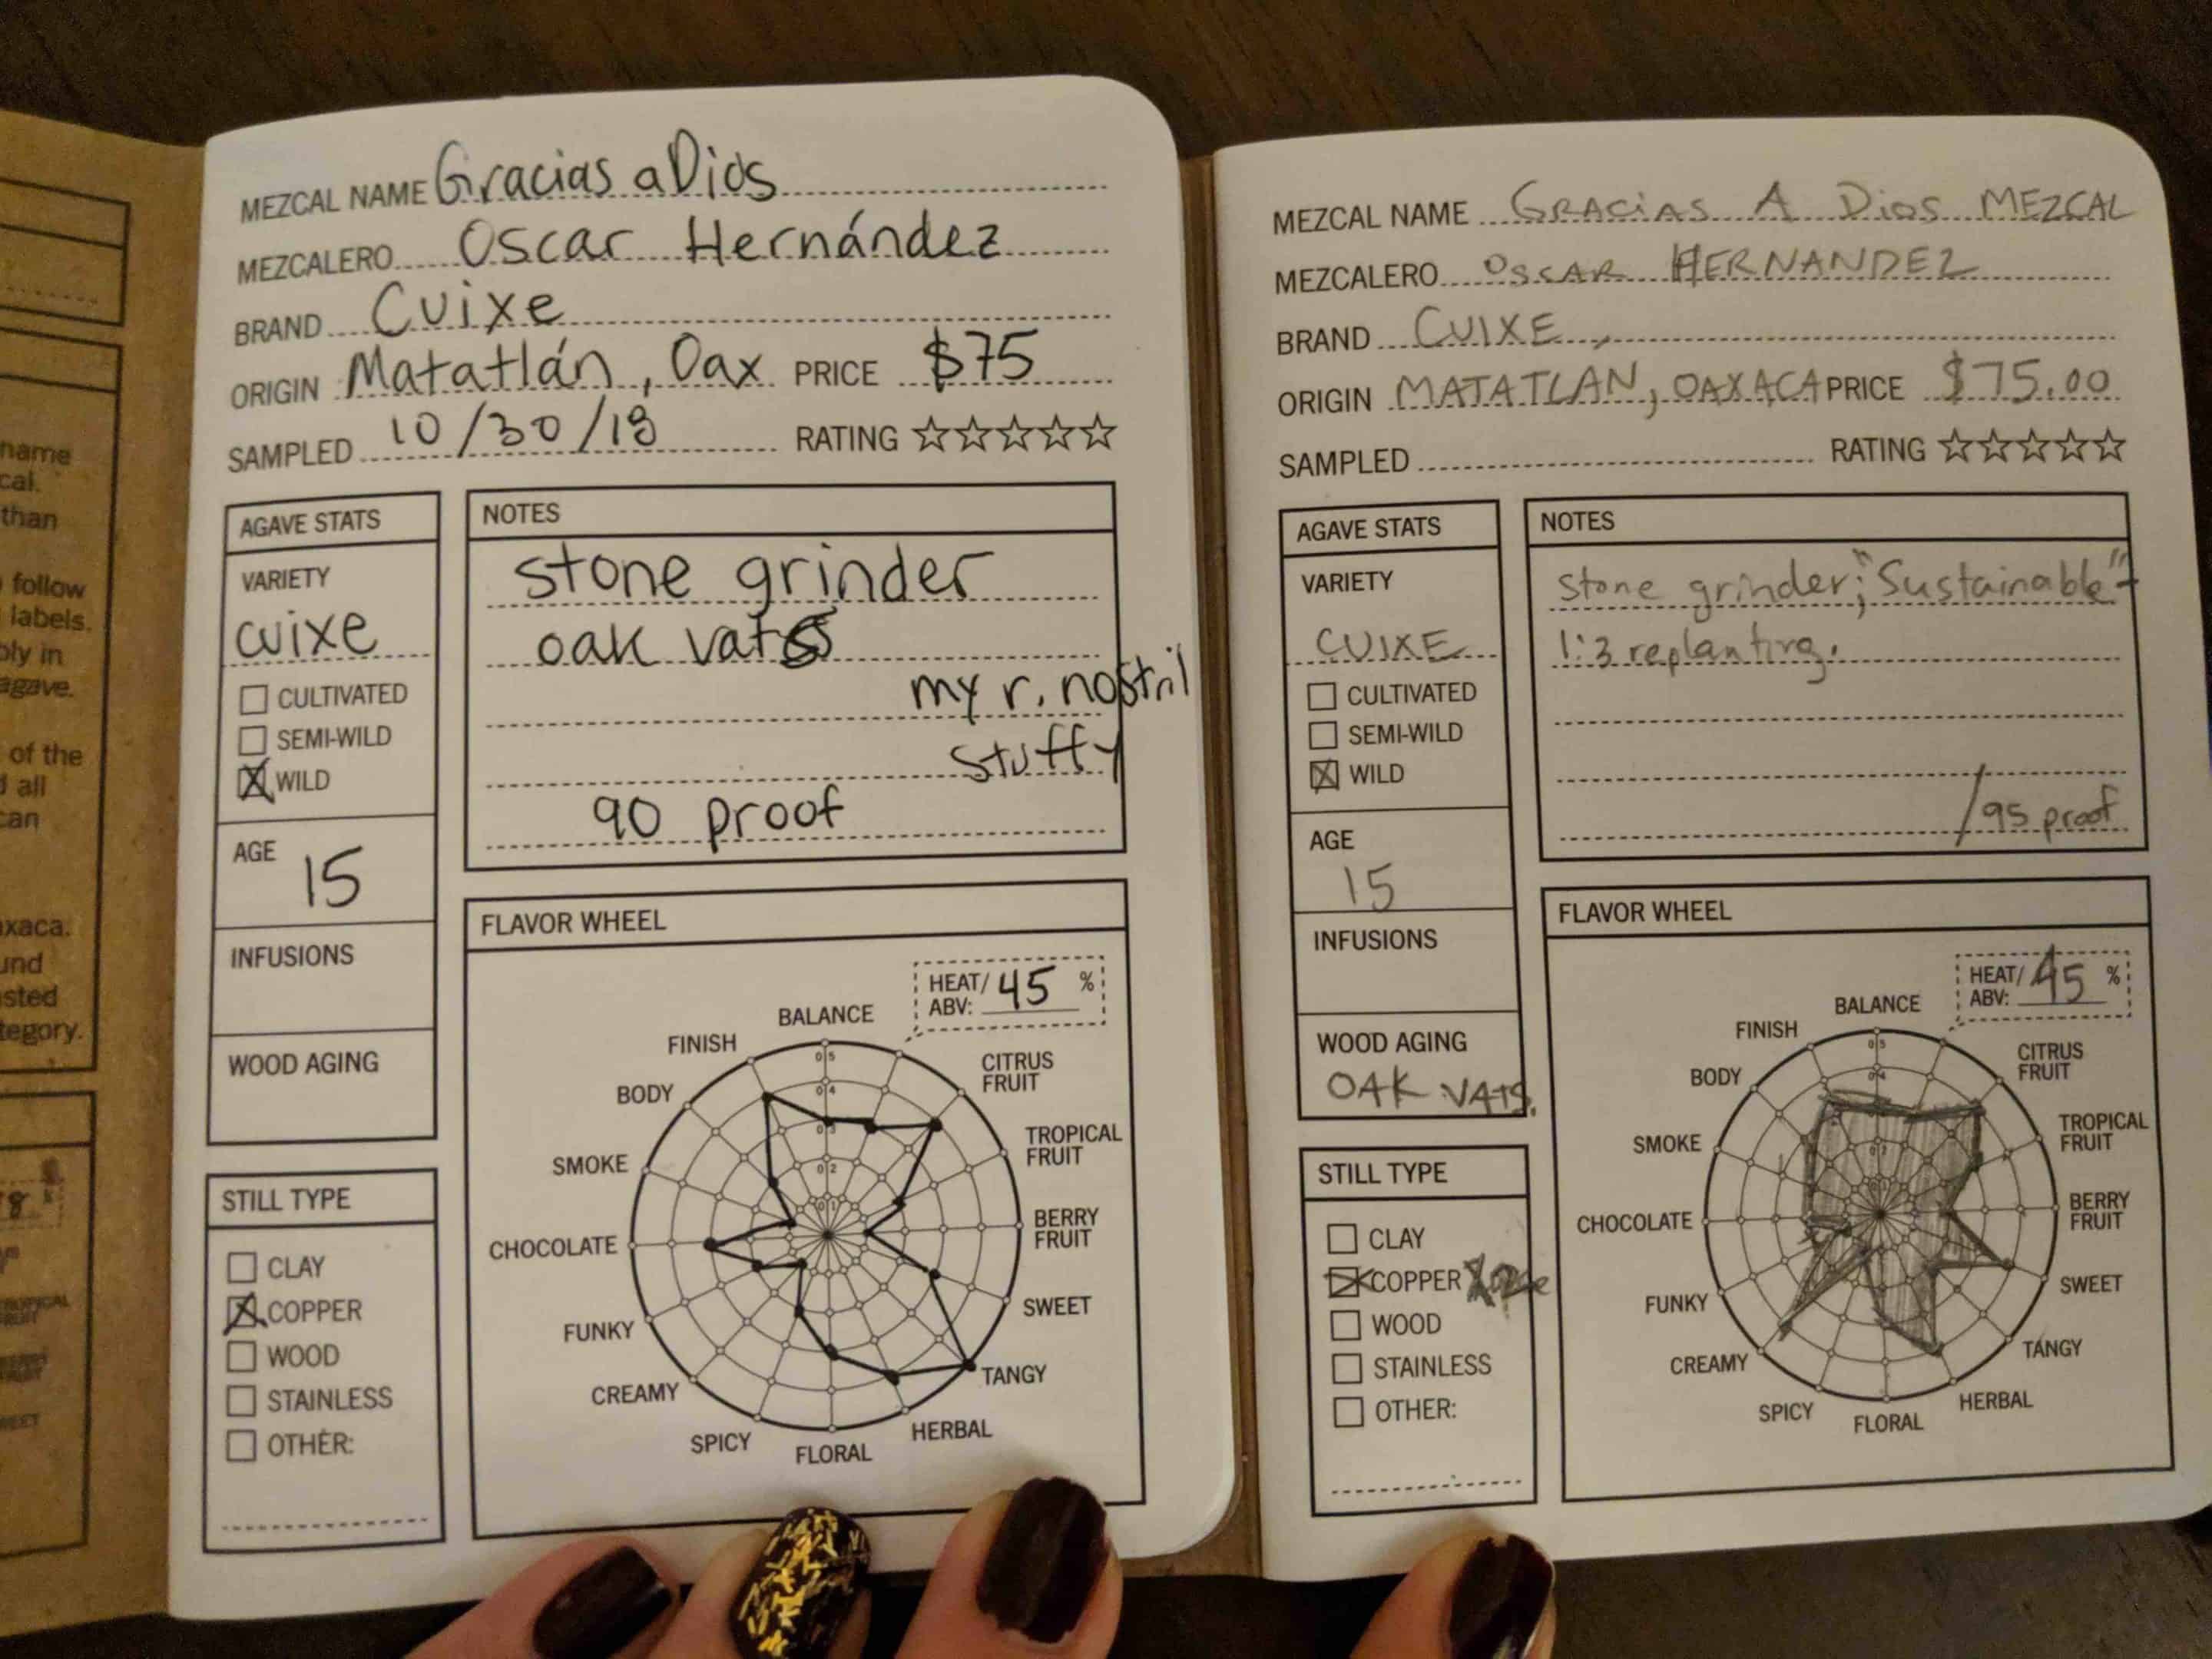 name
cal.
than
follow
labels.
oly in
agave.
of the
all
can
axaca.
und
sted
tegory.
MEZCAL NAME Gracias a Dios
MEZCALERO Oscar Hernández
BRAND Cuixe
ORIGIN Matatlán, Oax PRICE $75
SAMPLED 10/30/18 RATING
AGAVE STATS
VARIETY
cuixe
CULTIVATED
SEMI-WILD
WILD
AGE
15
INFUSIONS
WOOD AGING
STILL TYPE
CLAY
COPPER
WOOD
STAINLESS
OTHER:
NOTES
stone grinder
oak vats
my r. nostril
stuffy
90 proof
FLAVOR WHEEL
HEAT/
ABV: 45 %
BALANCE
CITRUS
FRUIT
TROPICAL
FRUIT
BERRY
FRUIT
SWEET
TANGY
HERBAL
FLORAL
SPICY
CREAMY
FUNKY
CHOCOLATE
SMOKE
BODY
FINISH
MEZCAL NAME GRACIAS A DIOS MEZCAL
MEZCALERO OSCAR HERNANDEZ
BRAND CUIXE
ORIGIN MATATLAN, OAXACA PRICE $75.00
SAMPLED RATING
AGAVE STATS
VARIETY
CUIXE
CULTIVATED
SEMI-WILD
WILD
AGE
15
INFUSIONS
WOOD AGING
OAK VATS.
STILL TYPE
CLAY
COPPER
WOOD
STAINLESS
OTHER:
NOTES
stone grinder; "Sustainable"-
1:3 replanting.
/95 proof
FLAVOR WHEEL
HEAT/
ABV: 45 %
BALANCE
CITRUS
FRUIT
TROPICAL
FRUIT
BERRY
FRUIT
SWEET
TANGY
HERBAL
FLORAL
SPICY
CREAMY
FUNKY
CHOCOLATE
SMOKE
BODY
FINISH